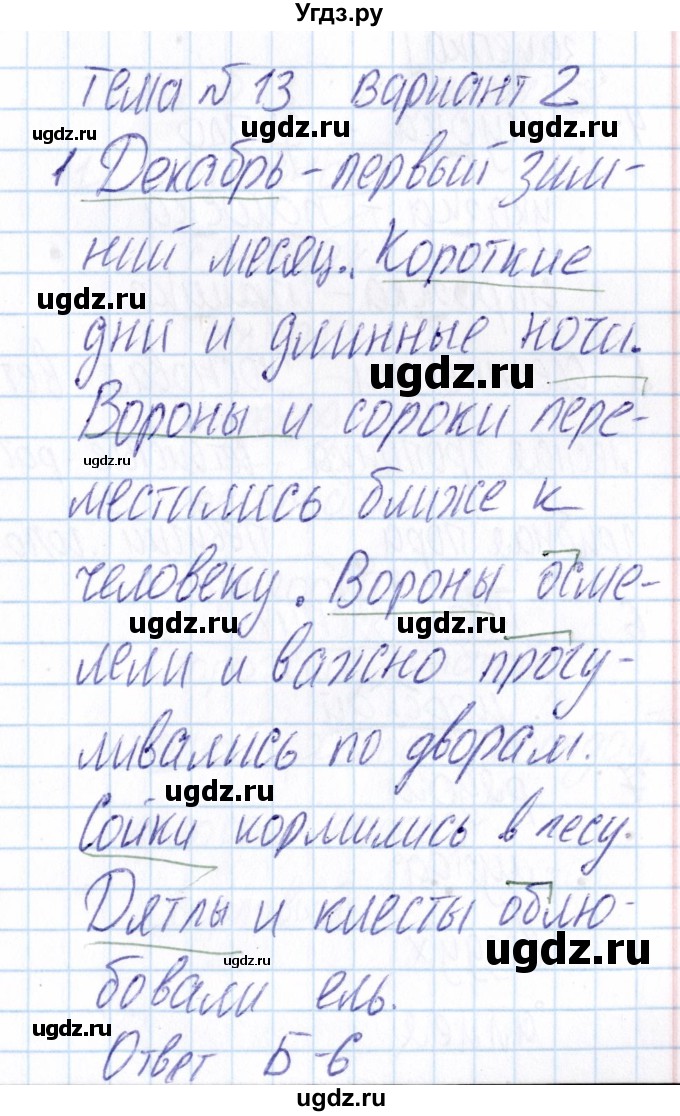 Угдз.ру
Тема № 13 вариант 2
ugdz.ru ugdz.ru ugdz.ru
1 Декабрь - первый зим-
ний месяц. Короткие
ugdz.ru
дни и длинные ночи.
ugdz.ru
Вороны и сороки пере-
ugdz.ru
местились ближе к
человеку. Вороны осме-
ugdz.ru ugdz.ru
лели и важно прогу-
ливались по дворам.
ugdz.ru
Сойки кормились в лесу.
Дятлы и клесты облю-
ugdz.ru ugdz.ru
бовали ель.
ugdz.ru
Ответ Б-6
ugdz.ru ugdz.ru